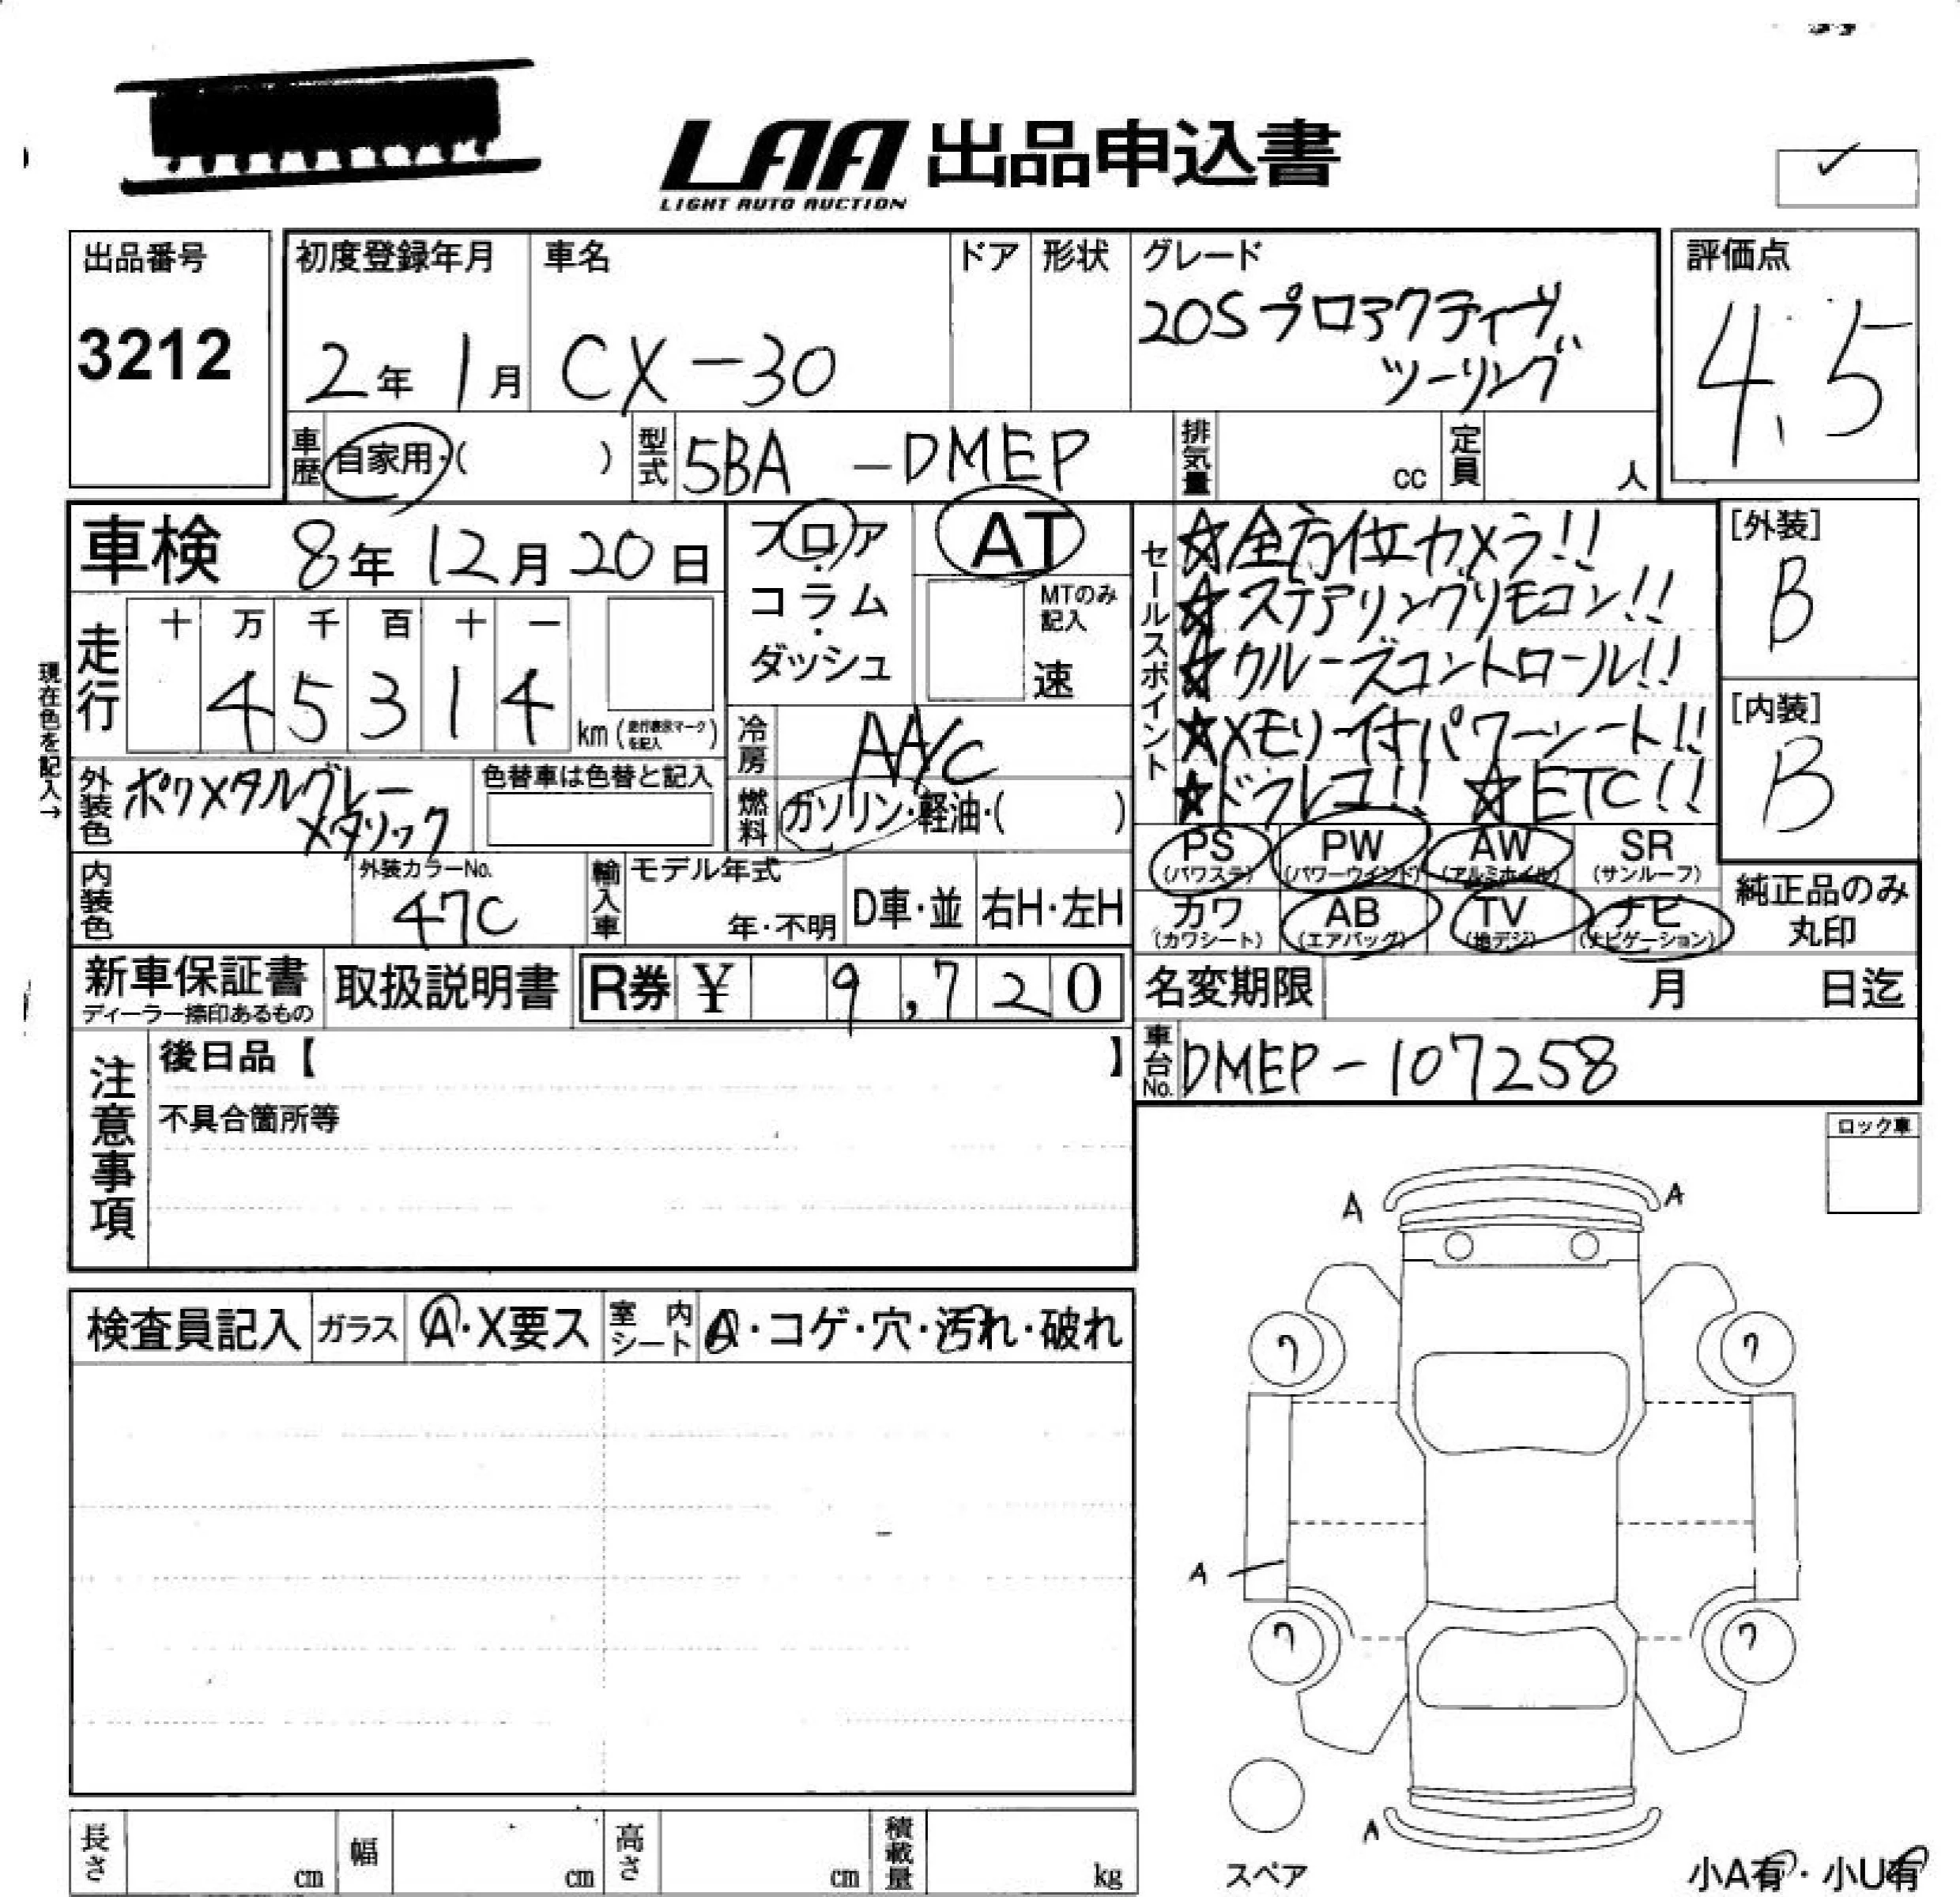 LAA 出品申込書
LIGHT AUTO AUCTION
出品番号
3212
初度登録年月
2年1月
車名
CX-30
ドア
形状
グレード
20Sプロアクティブ
ツーリング
評価点
4.5
車歴
自家用・( )
型式
5BA -DMEP
排気量
cc
定員
人
車検 8年12月20日
フロア
・
コラム
・
ダッシュ
AT
MTのみ
記入
速
セールスポイント
☆全方位カメラ!!
☆ステアリングリモコン!!
☆クルーズコントロール!!
★メモリー付パワーシート!!
★ドラレコ!! ☆ETC!!
[外装]
B
[内装]
B
現在色を記入→
走行
十 万 千 百 十 一
4 5 3 1 4
km (走行表示マークを記入)
冷房
AA/C
燃料
ガソリン・軽油・( )
外装色
ポリメタルグレー
メタリック
色替車は色替と記入
内装色
外装カラーNo.
47C
輸入車
モデル年式
年・不明
D車・並
右H・左H
PS
(パワステ)
PW
(パワーウインド)
AW
(アルミホイル)
SR
(サンルーフ)
カワ
(カワシート)
AB
(エアバッグ)
TV
(地デジ)
ナビ
(ナビゲーション)
純正品のみ
丸印
新車保証書
ディーラー捺印あるもの
取扱説明書
R券 ¥ 9,720
名変期限 月 日迄
車台No.
DMEP-107258
注意事項
後日品【 】
不具合箇所等
ロック車
検査員記入
ガラス
A・X要ス
室内
シート
A・コゲ・穴・汚れ・破れ
A
A
7
7
A
7
7
A
スペア
小A有・小U有
長さ
cm
幅
cm
高さ
cm
積載量
kg